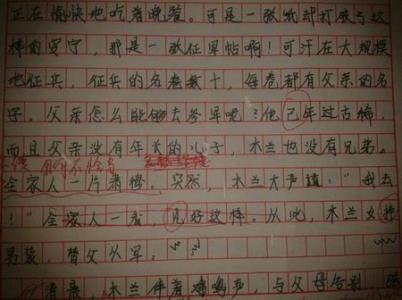 正在愉快地吃着晚餐。可是一张纸却打破了这
样的宁宁，那是一张征军帖啊！可汗在大规模
地征兵，征兵的名卷数十，每卷都有父亲的名
子。父亲怎么能够去参军呢？他已年过古稀，
而且父亲没有年长的儿子，木兰也没有兄弟。
全家人一片凄惨。突然，木兰大声道："我去
！"全家人一看，只好这样。从此，木兰女扮
男装，替父从军。
清晨，木兰伴着鸡鸣声，与父母告别，